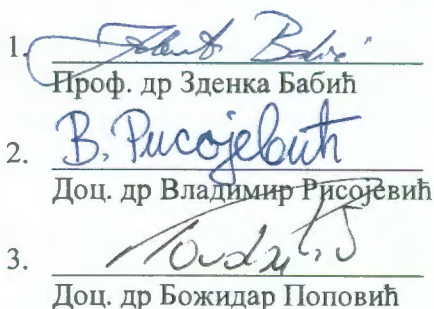 1.
Проф. др Зденка Бабић
2. В. Рисојевић
Доц. др Владимир Рисојевић
3.
Доц. др Божидар Поповић